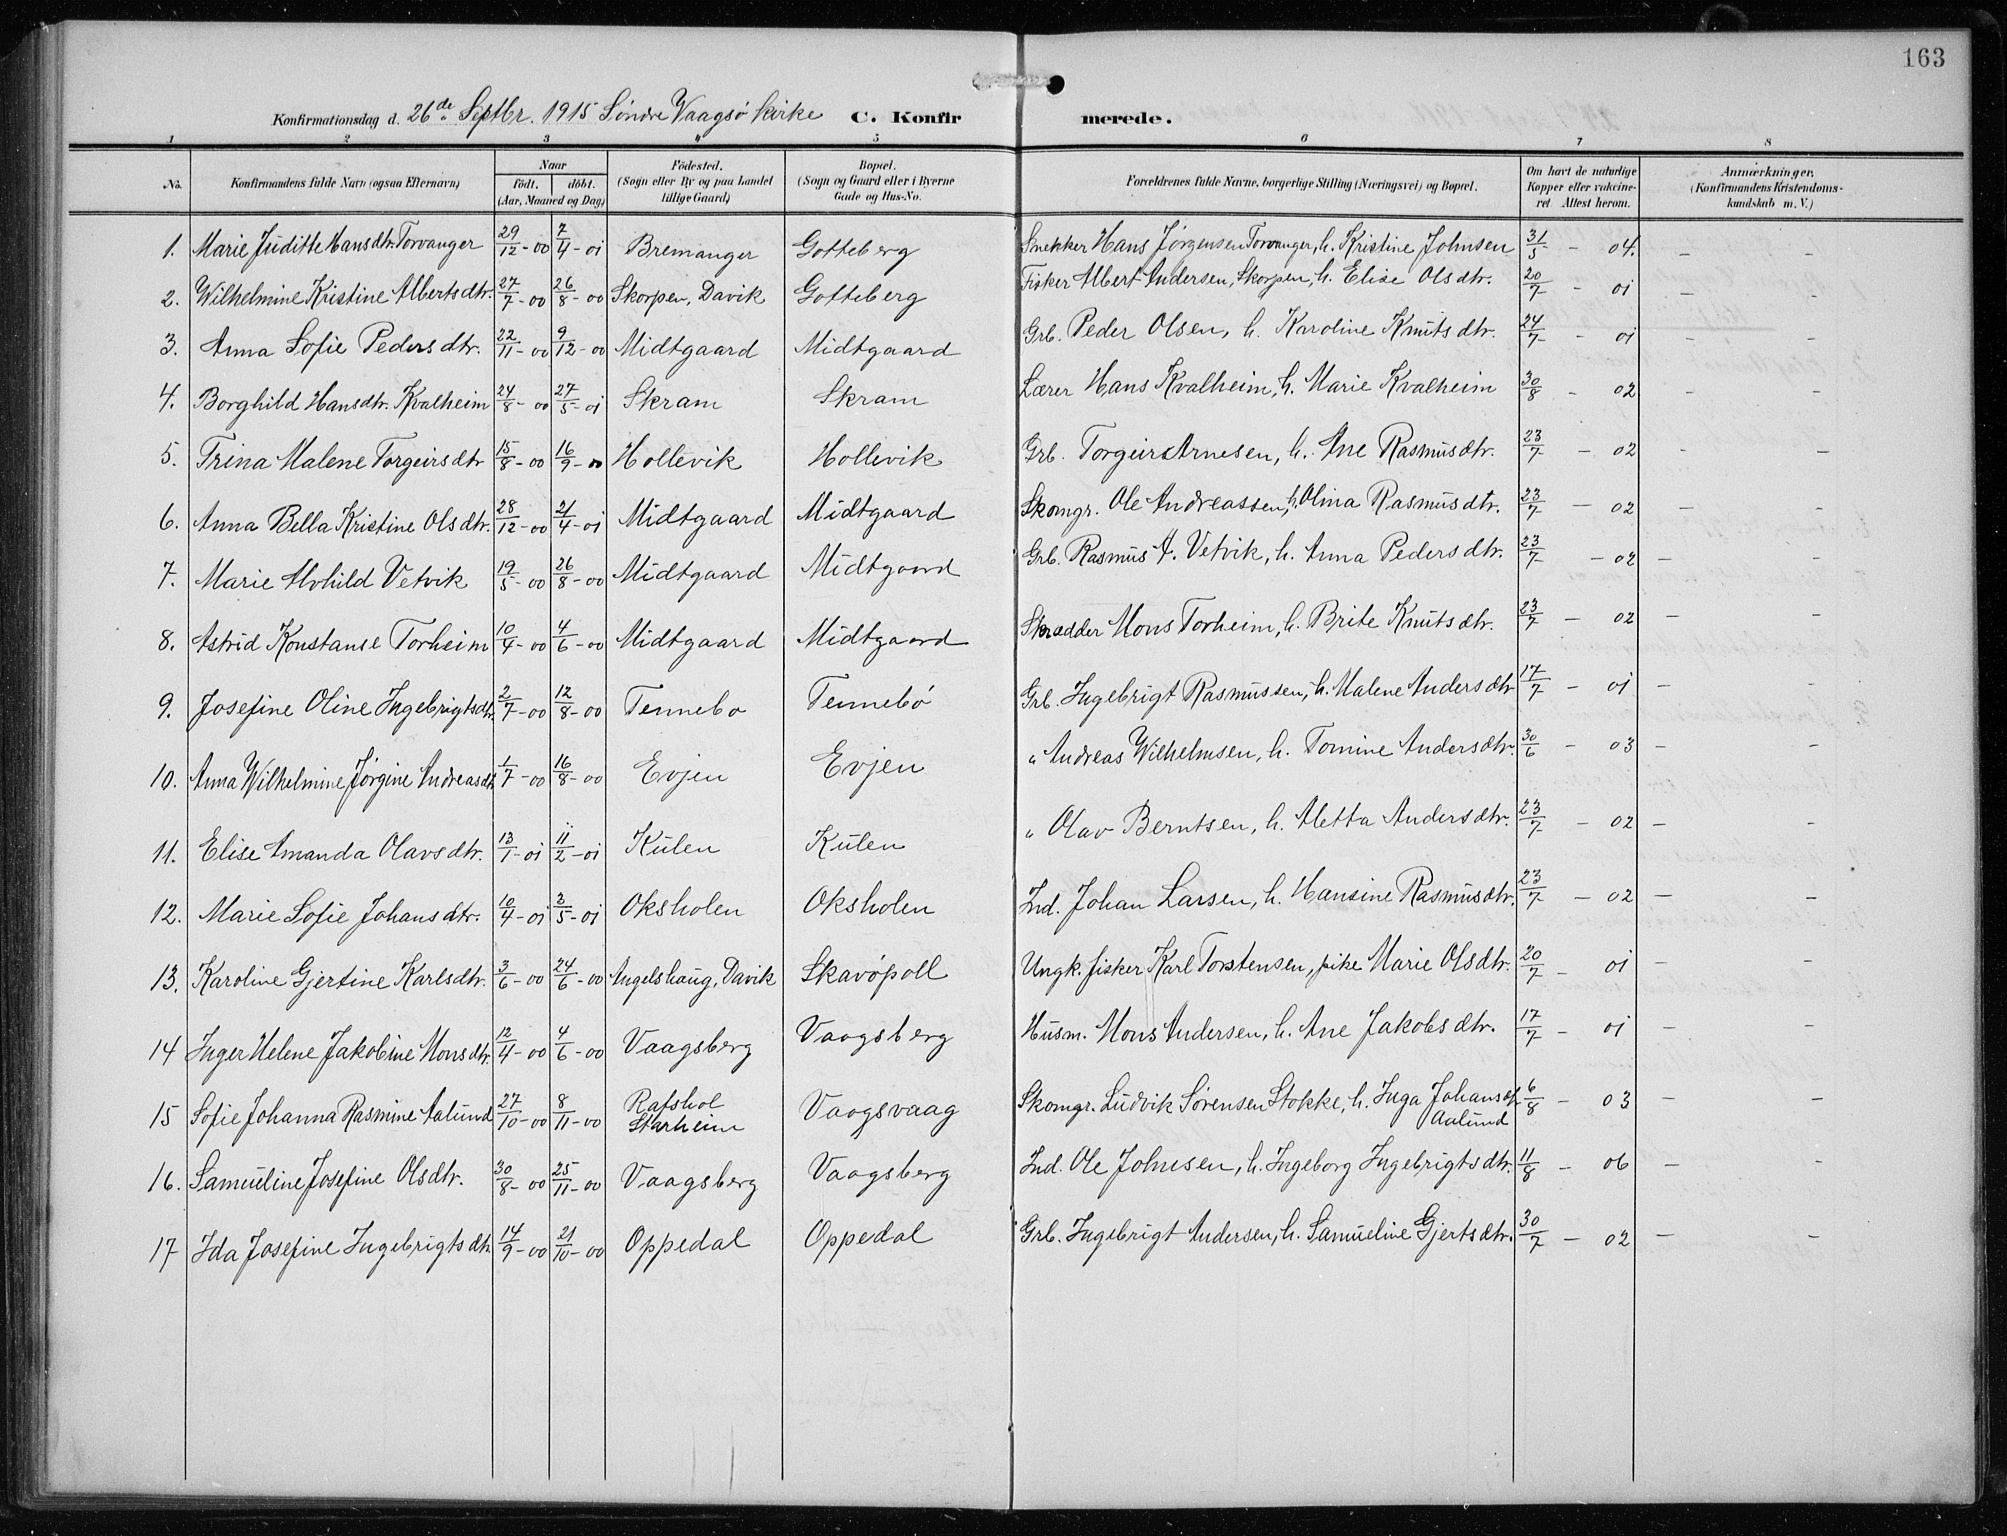 163
Konfirmationsdag d. 26de Septbr. 1915 Søndre Vaagsø kirke C. Konfirmerede.
1 2 3 4 5 6 7 8
No. Konfirmandens fulde Navn (ogsaa Efternavn) Naar født. døbt. (Aar, Maaned og Dag) Fødested. (Sogn eller By og paa Landet tillige Gaard) Bopæl. (Sogn og Gaard eller i Byerne Gade og Hus-No. Forældrenes fulde Navne, borgerlige Stilling (Næringsvei) og Bopæl. Om havt de naturlige Kopper eller vakcineret Attest herom. Anmærkninger. (Konfirmandens Kristendomskundskab m. V.)
1. Marie Juditte Hansdtr. Torvanger 29/12-00 7/4-01 Bremanger Gotteberg Snekker Hans Jørgensen Torvanger, h. Kristine Johnsen 31/5 - 04. - -
2. Wilhelmine Kristine Albertsdtr. 27/7-00 26/8-00 Skorpen, Davik Gotteberg Fisker Albert Andersen, Skorpen, h. Elise Olsdtr. 20/7 - 01 - -
3. Anna Sofie Pedersdtr. 22/11-00 9/12-00 Midtgaard Midtgaard Grb. Peder Olsen, h. Karoline Knutsdtr. 24/7 - 01 - -
4. Borghild Hansdtr. Kvalheim 24/8-00 27/5-01 Skram Skram Lærer Hans Kvalheim, h. Marie Kvalheim 30/8 - 02 - -
5. Trina Malene Torgeirsdtr 15/8-00 16/9-00 Hollevik Hollevik Grb. Torgeir Arnesen, h. Ane Rasmusdtr. 23/7 - 02 - -
6. Anna Bella Kristine Olsdtr. 28/12-00 21/4-01 Midtgaard Midtgaard Skomgr. Ole Andreassen, h. Olina Rasmusdtr. 23/7 - 02 - -
7. Marie Alvhild Vetvik 19/5-00 26/8-00 Midtgaard Midtgaard Grb. Rasmus A. Vetvik, h. Anna Pedersdtr. 23/7 - 02 - -
8. Astrid Konstanse Torheim 10/4-00 4/6-00 Midtgaard Midtgaard Skrædder Mons Torheim, h. Brite Knutsdtr. 23/7 - 02 - -
9. Josefine Oline Ingebrigtsdtr. 2/7-00 12/8-00 Tennebo Tennebö Grb. Ingebrigt Rasmussen, h. Malene Andersdtr 17/7 - 01 - -
10. Anna Wilhelmine Jørgine Andreasdtr. 1/7-00 16/8-00 Evjen Evjen " Andreas Wilhelmsen, h. Tomine Andersdtr. 30/6 - 03 - -
11. Elise Amanda Olavsdtr. 13/1-01 11/2-01 Kulen Kulen " Olav Berntsen, h. Aletta Andersdtr. 23/7 - 02 - -
12. Marie Sofie Johansdtr. 10/4-01 3/5-01 Oksholen Oksholen Ind. Johan Larsen, h. Hansine Rasmusdtr. 23/7 - 02 - -
13. Karoline Gjertine Karlsdtr. 3/6-00 24/6-00 Angelshaug, Davik Skavöpoll Ungk. fisker Karl Torstensen, pike Marie Olsdtr. 20/7 - 01 - -
14 Inger Helene Jakobine Monsdtr. 12/4-00 4/6-00 Vaagsberg Vaagsberg Husm. Mons Andersen, h. Ane Jakobsdtr. 17/7 - 01 - -
15 Sofie Johanna Rasmine Aalund 27/10-00 8/11-00 Rafshol Starheim Vaagsvaag Skomgr. Ludvik Sørensen Stokke, h. Inga Johansdtr Aalund 6/8 - 03 - -
16. Samueline Josefine Olsdtr. 30/8-00 25/11-00 Vaagsberg Vaagsberg Ind. Ole Johnsen, h. Ingeborg Ingebrigtsdtr. 11/8 - 06 - -
17 Ida Josefine Ingebrigtsdtr 14/9-00 21/10-00 Oppedal Oppedal Grb. Ingebrigt Andersen, h. Samueline Gjertsdtr. 30/7 - 02 - -